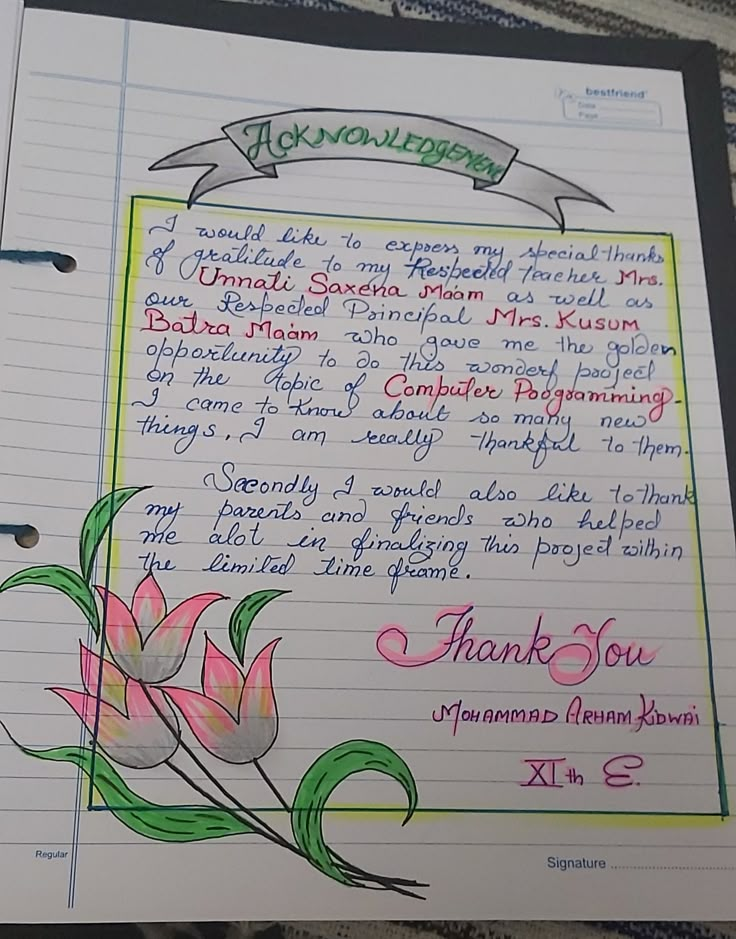 bestfriend
Date
Page
ACKNOWLEDGEMENT
I would like to express my special thanks
of gratitude to my Respected teacher Mrs.
Unnati Saxena Maam as well as
our Respected Principal Mrs. Kusum
Batra Maam who gave me the golden
opportunity to do this wonderf project
on the topic of Computer Programming.
I came to know about so many new
things, I am really thankful to them.
Secondly I would also like to thank
my parents and friends who helped
me alot in finalizing this project within
the limited time frame.
Thank You
MOHAMMAD ARHAM KIDWAI
XIth E.
Regular
Signature